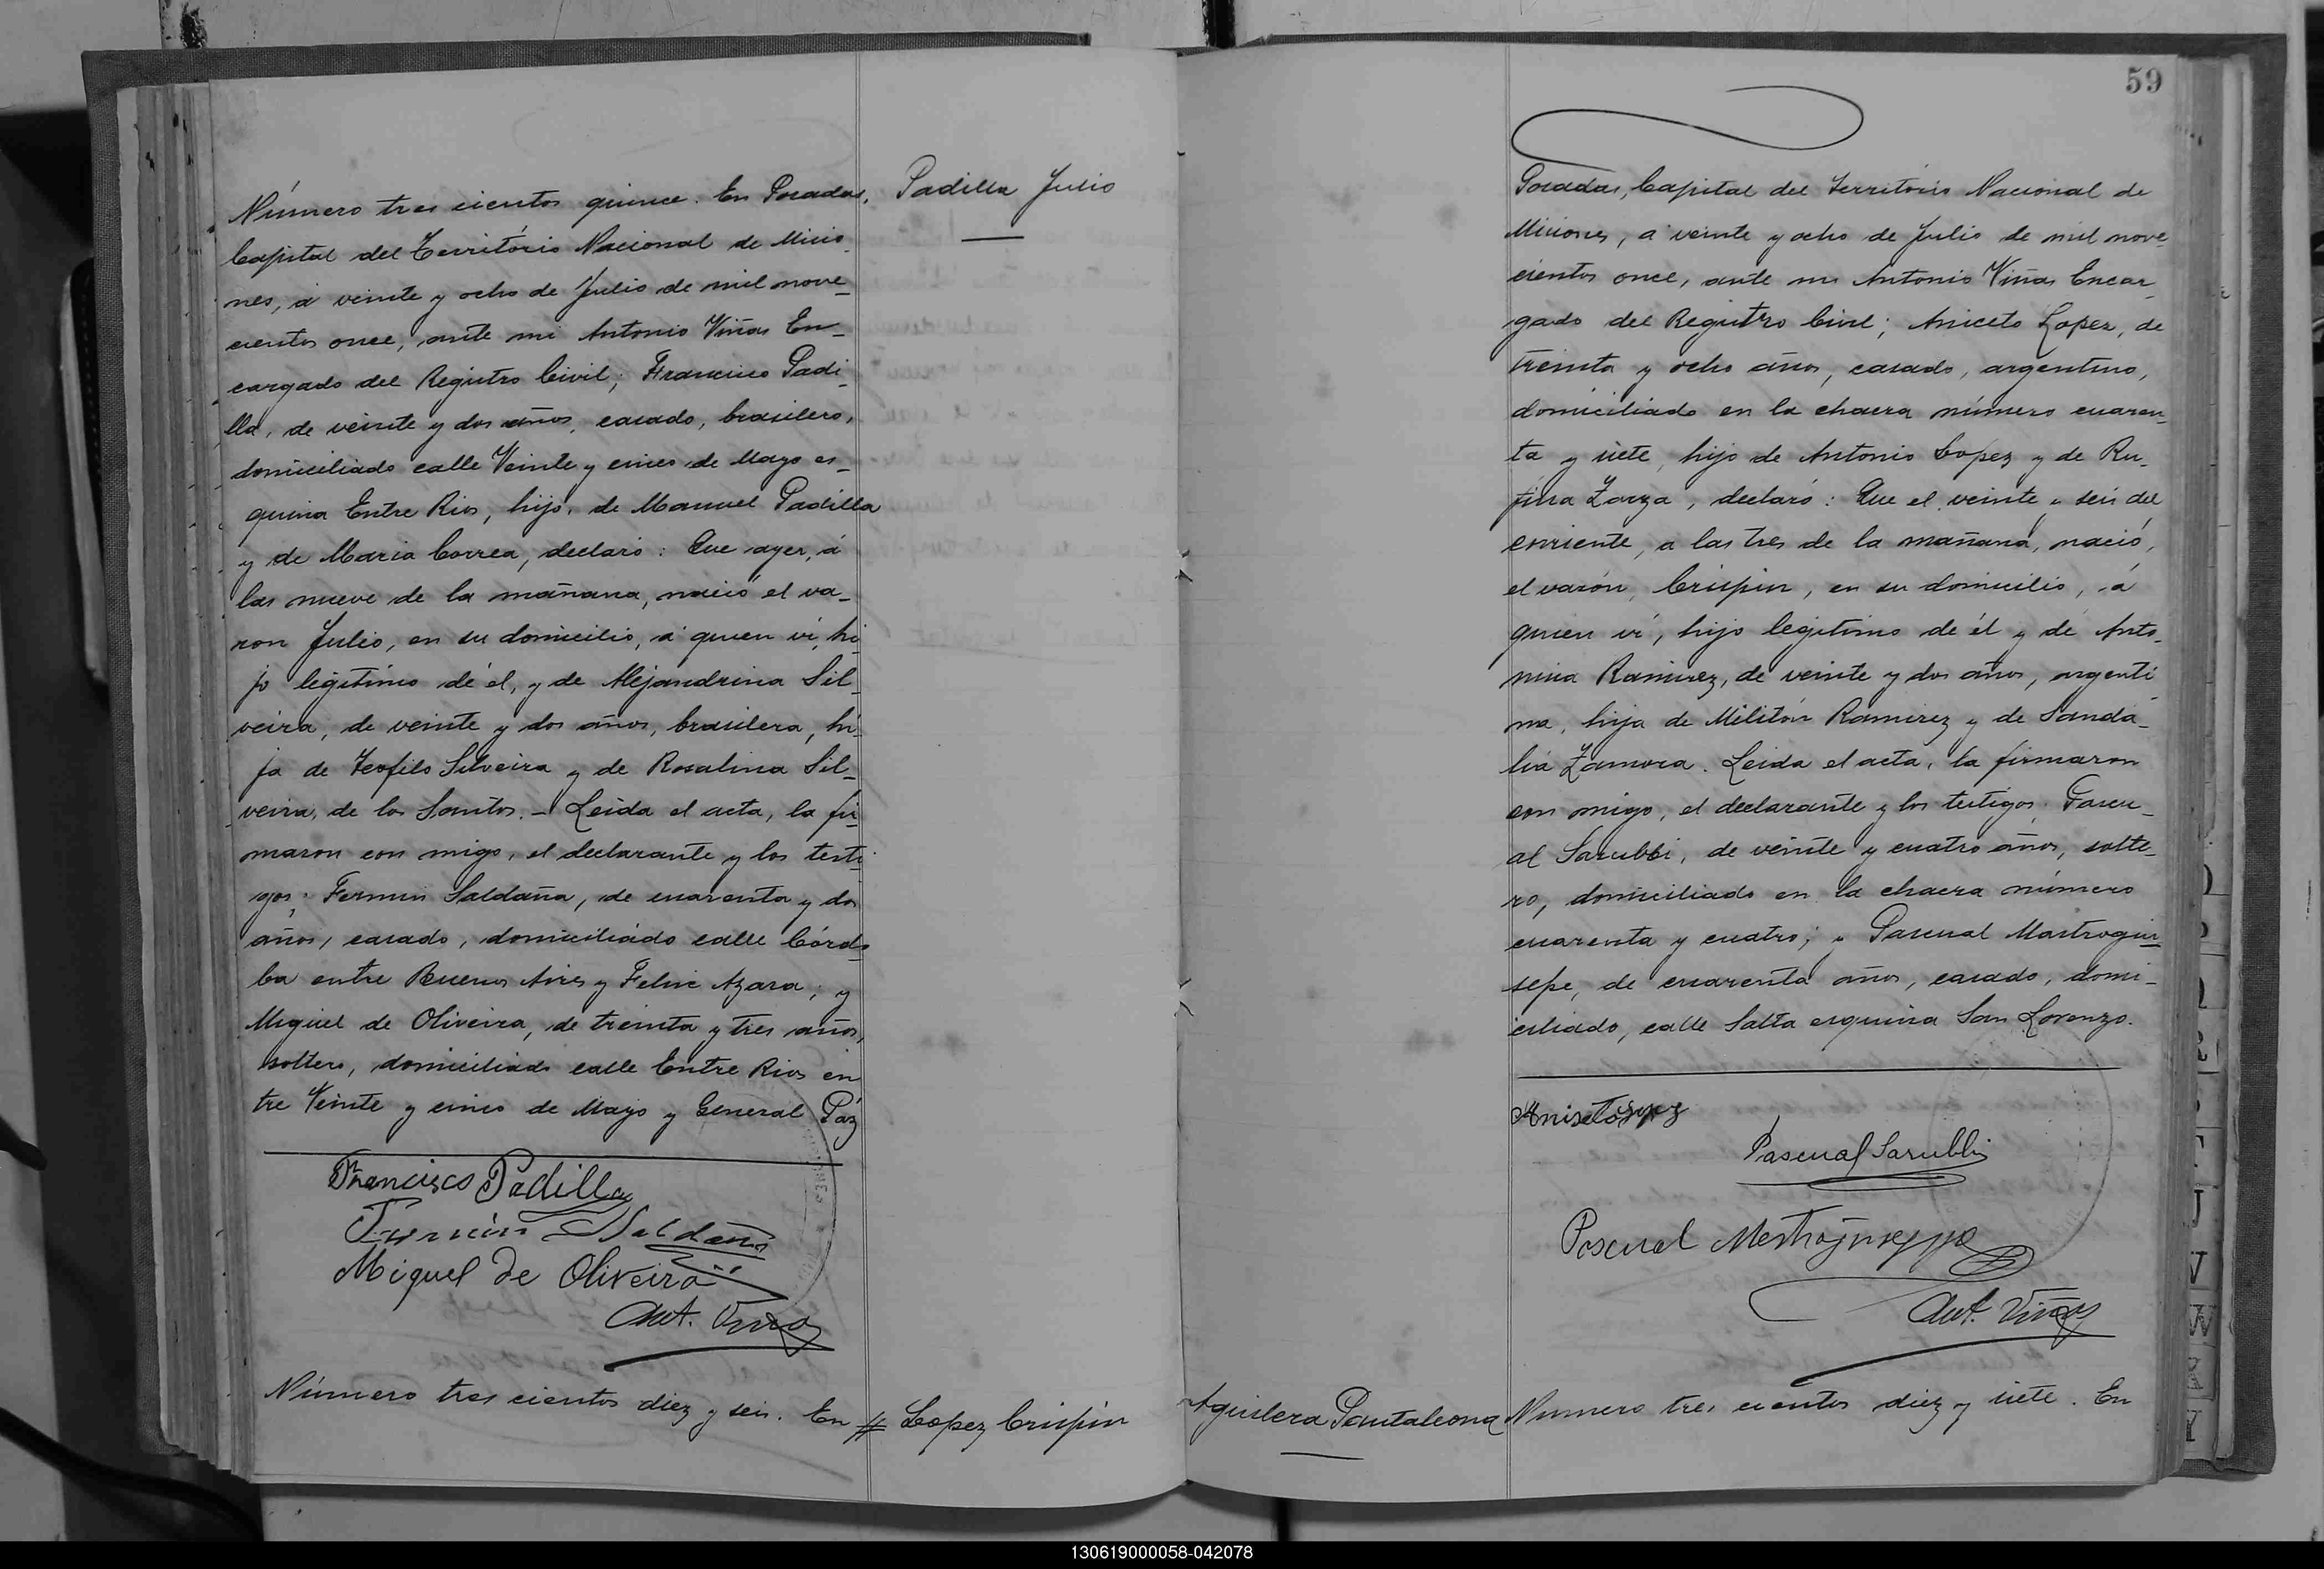 Número tres cientos quince. En Posadas,
Capital del Território Nacional de Misio_
nes, á veinte y ocho de Julio de mil nove_
cientos once, ante mi Antonio Viñas En_
cargado del Registro Civil; Francisco Padi_
lla, de veinte y dos años, casado, brasilero,
domiciliado calle Veinte y cinco de Mayo es_
quina Entre Rios, hijo, de Manuel Padilla
y de Maria Correa, declaró: Que ayer, á
las nueve de la mañana, nació el va_
ron Julio, en su domicilio, á quien ví, hi_
jo legítimo de él, y de Alejandrina Sil_
veira, de veinte y dos años, brasilera, hi_
ja de Teofilo Silveira y de Rosalina Sil_
veira, de los Santos. _ Leida el acta, la fir_
maron con migo, el declarante y los testi_
gos; Fermin Saldaña, de cuarenta y dos
años, casado, domiciliado calle Córdo_
ba entre Buenos Aires y Felix Azara; y
Miguel de Oliveira, de treinta y tres años,
soltero, domiciliado calle Entre Rios en
tre Veinte y cinco de Mayo y General Paz
Francisco Padilla
Fermin Saldaña
Miguel de Oliveira
Ant. Viñas
Número tres cientos diez y seis. En #
Padilla Julio
Lopez Crispin
59
Posadas, Capital del Território Nacional de
Misiones, á veinte y ocho de Julio de mil nove_
cientos once, ante mi Antonio Viñas Encar_
gado del Registro Civil; Aniceto Lopez, de
treinta y ocho años, casado, argentino,
domiciliado en la chacra número cuaren_
ta y siete, hijo de Antonio Lopez y de Ru_
fina Zarza, declaró: Que el veinte y seis del
corriente, a las tres de la mañana, nació,
el varón, Crispin, en su domicilio, á
quien ví, hijo legítimo de él y de Anto_
nina Ramirez, de veinte y dos años, argenti_
na, hija de Militón Ramirez y de Sanda_
lia Zamora. Leida el acta, la firmaron
con migo, el declarante y los testigos, Pascu_
al Sarubbi, de veinte y cuatro años, solte_
ro, domiciliado en la chacra número
cuarenta y cuatro; y Pascual Mastrogiu_
sepe, de cuarenta años, casado, domi_
ciliado, calle Salta esquina San Lorenzo.
Aniseto Lopez
Pascual Sarubbi
Pascual Mastrojuseppe
Ant. Viñas
Aguilera Pantaleona
Número tres cientos diez y siete. En
130619000058-042078